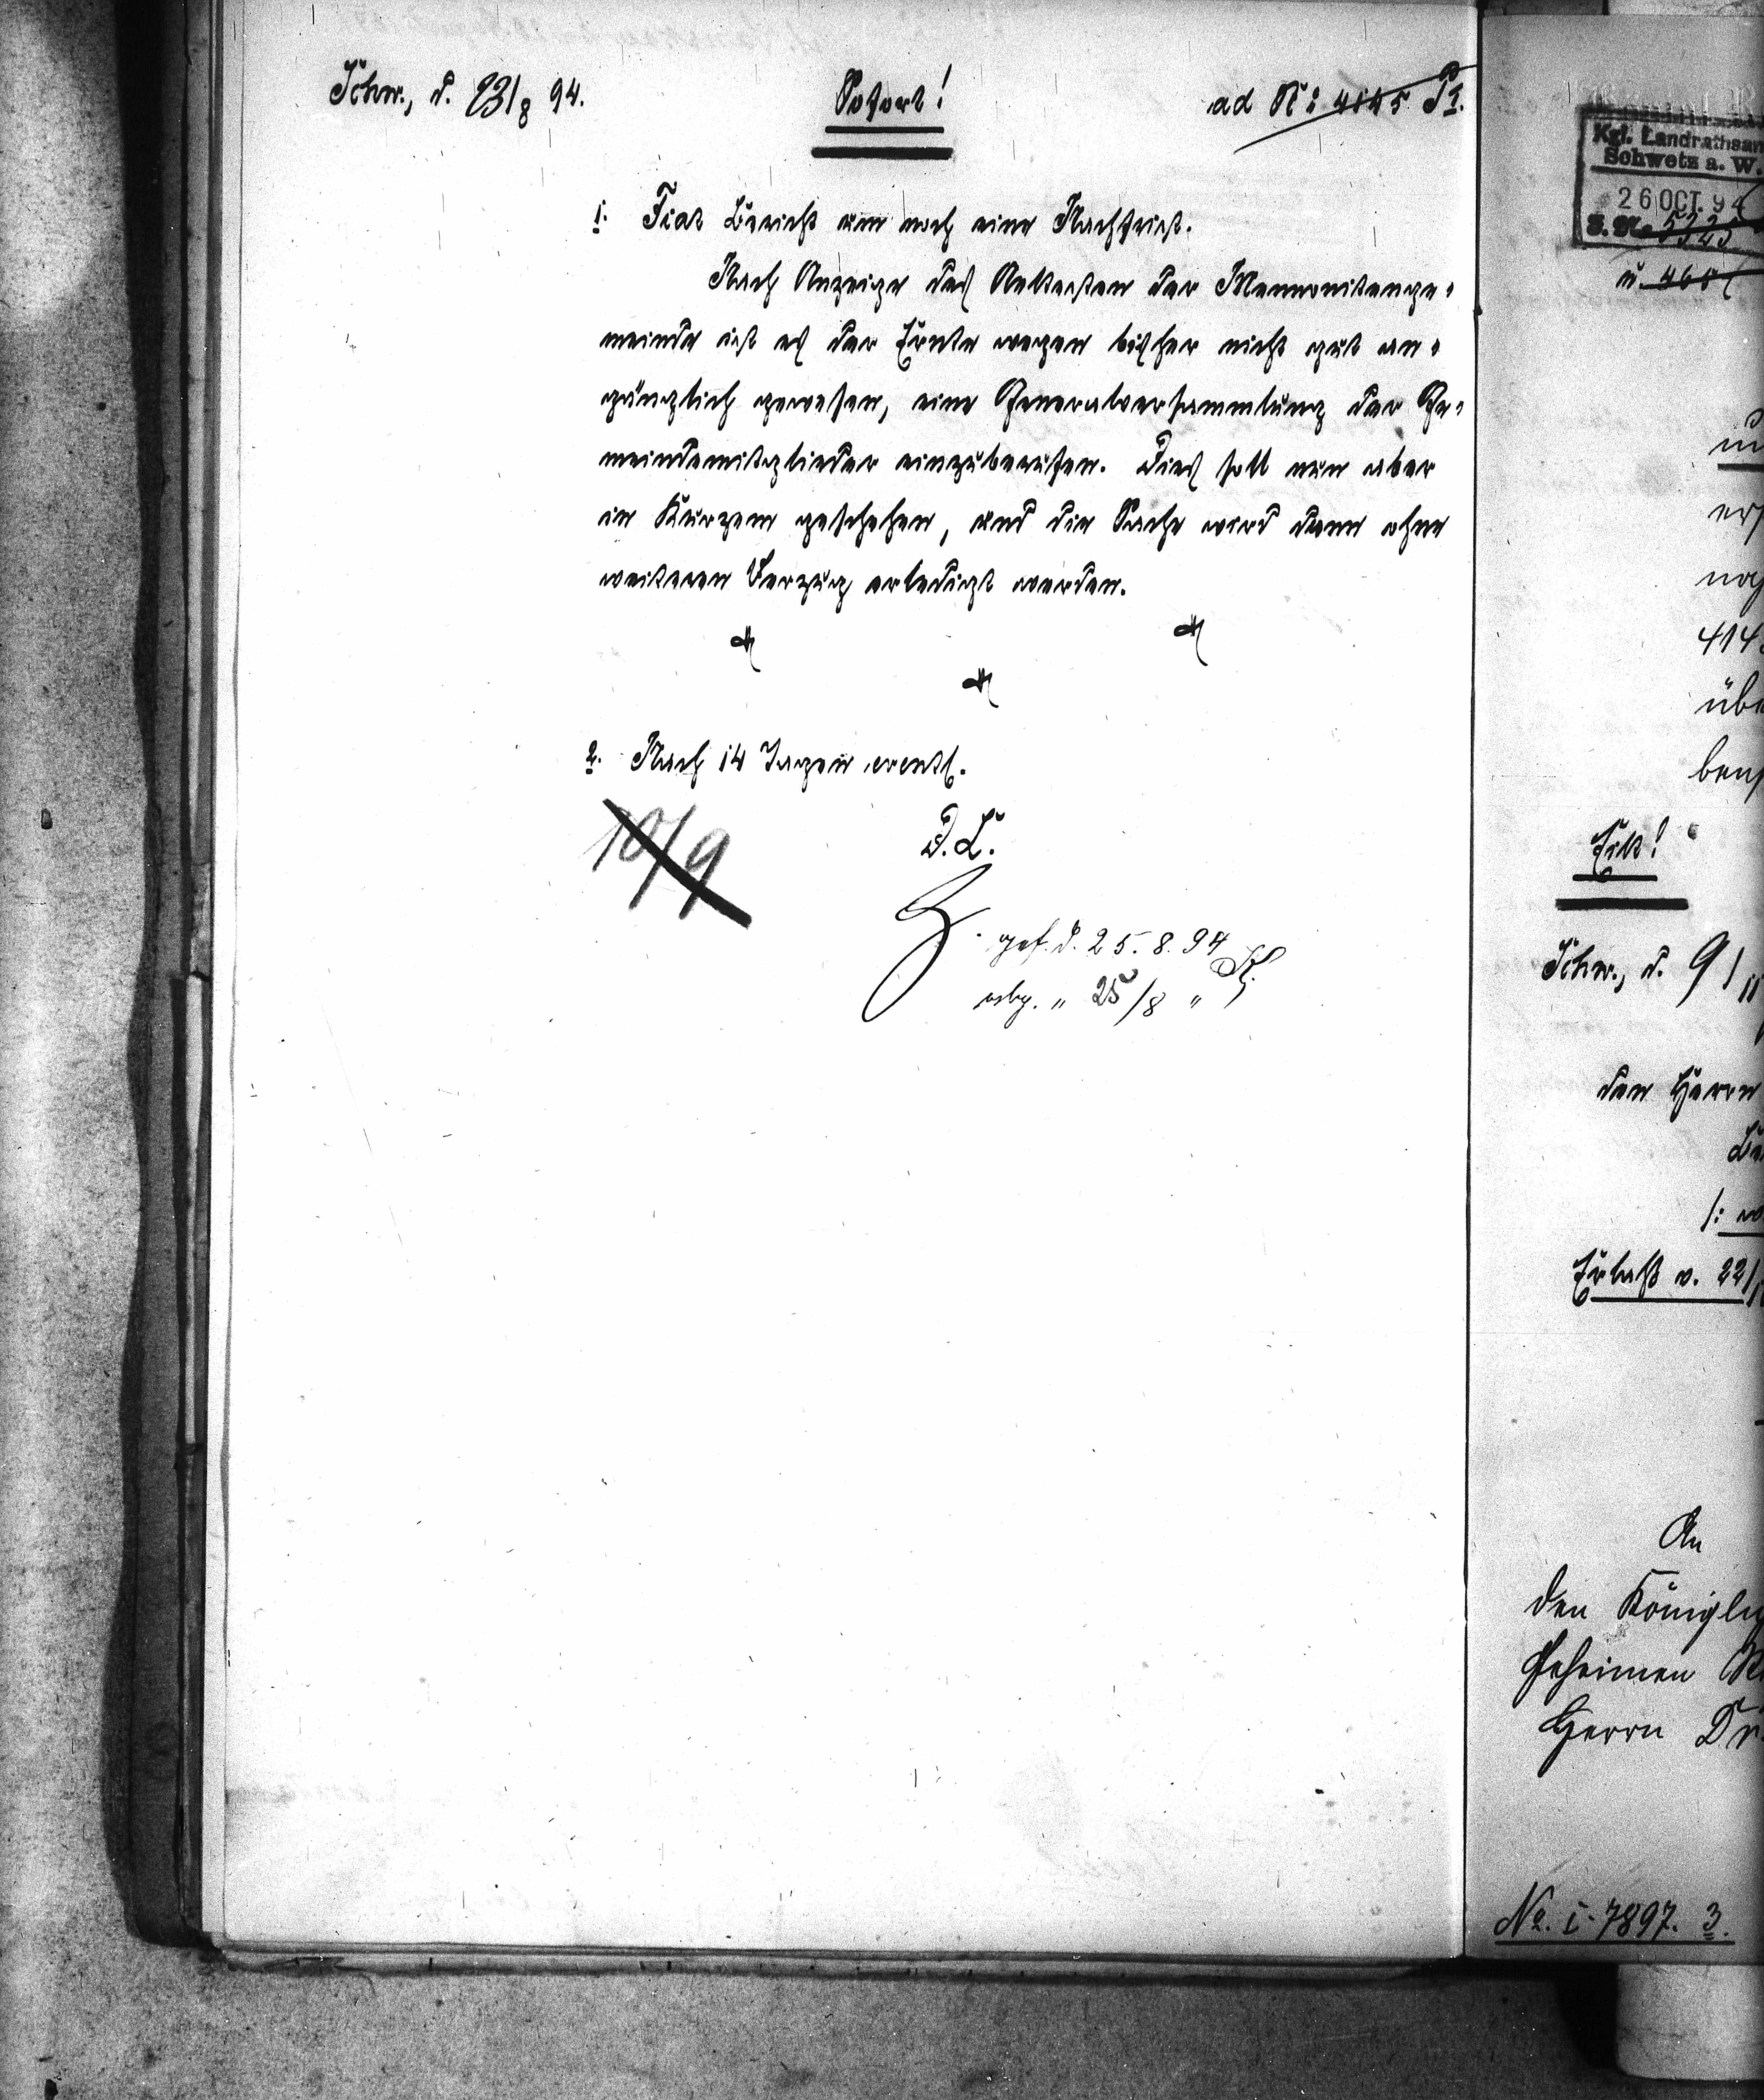 Schw., d. 23/8 94.
Sofort!
ad N: 4145 I.
1. Fiat Bericht um noch eine Nachfrist.
Nach Anzeige des Aeltesten der Mennonitenge-
meinde ist es der Ernte wegen bisher nicht gut an-
gänglich gewesen, eine Generalversammlung der Ge-
meindemitglieder einzuberufen. Dies soll nun aber
in Kurzem geschehen, und die Sache wird dann ohne
weiteren Verzug erledigt werden.
2. Nach 14 Tagen eventl.
10/9
D. L.
gef. d. 25. 8. 94
abg. " 25/8 "
Kgl. Landrathsam
Schwetz a. W.
26 OCT. 94
J. No 5325
414
übe
Eilt!
Schw., d. 9/11
den Herrn
Erlaß v. 22/
An
den Königli
Geheimen R
Herrn Dr.
No. I. 7897. 3.